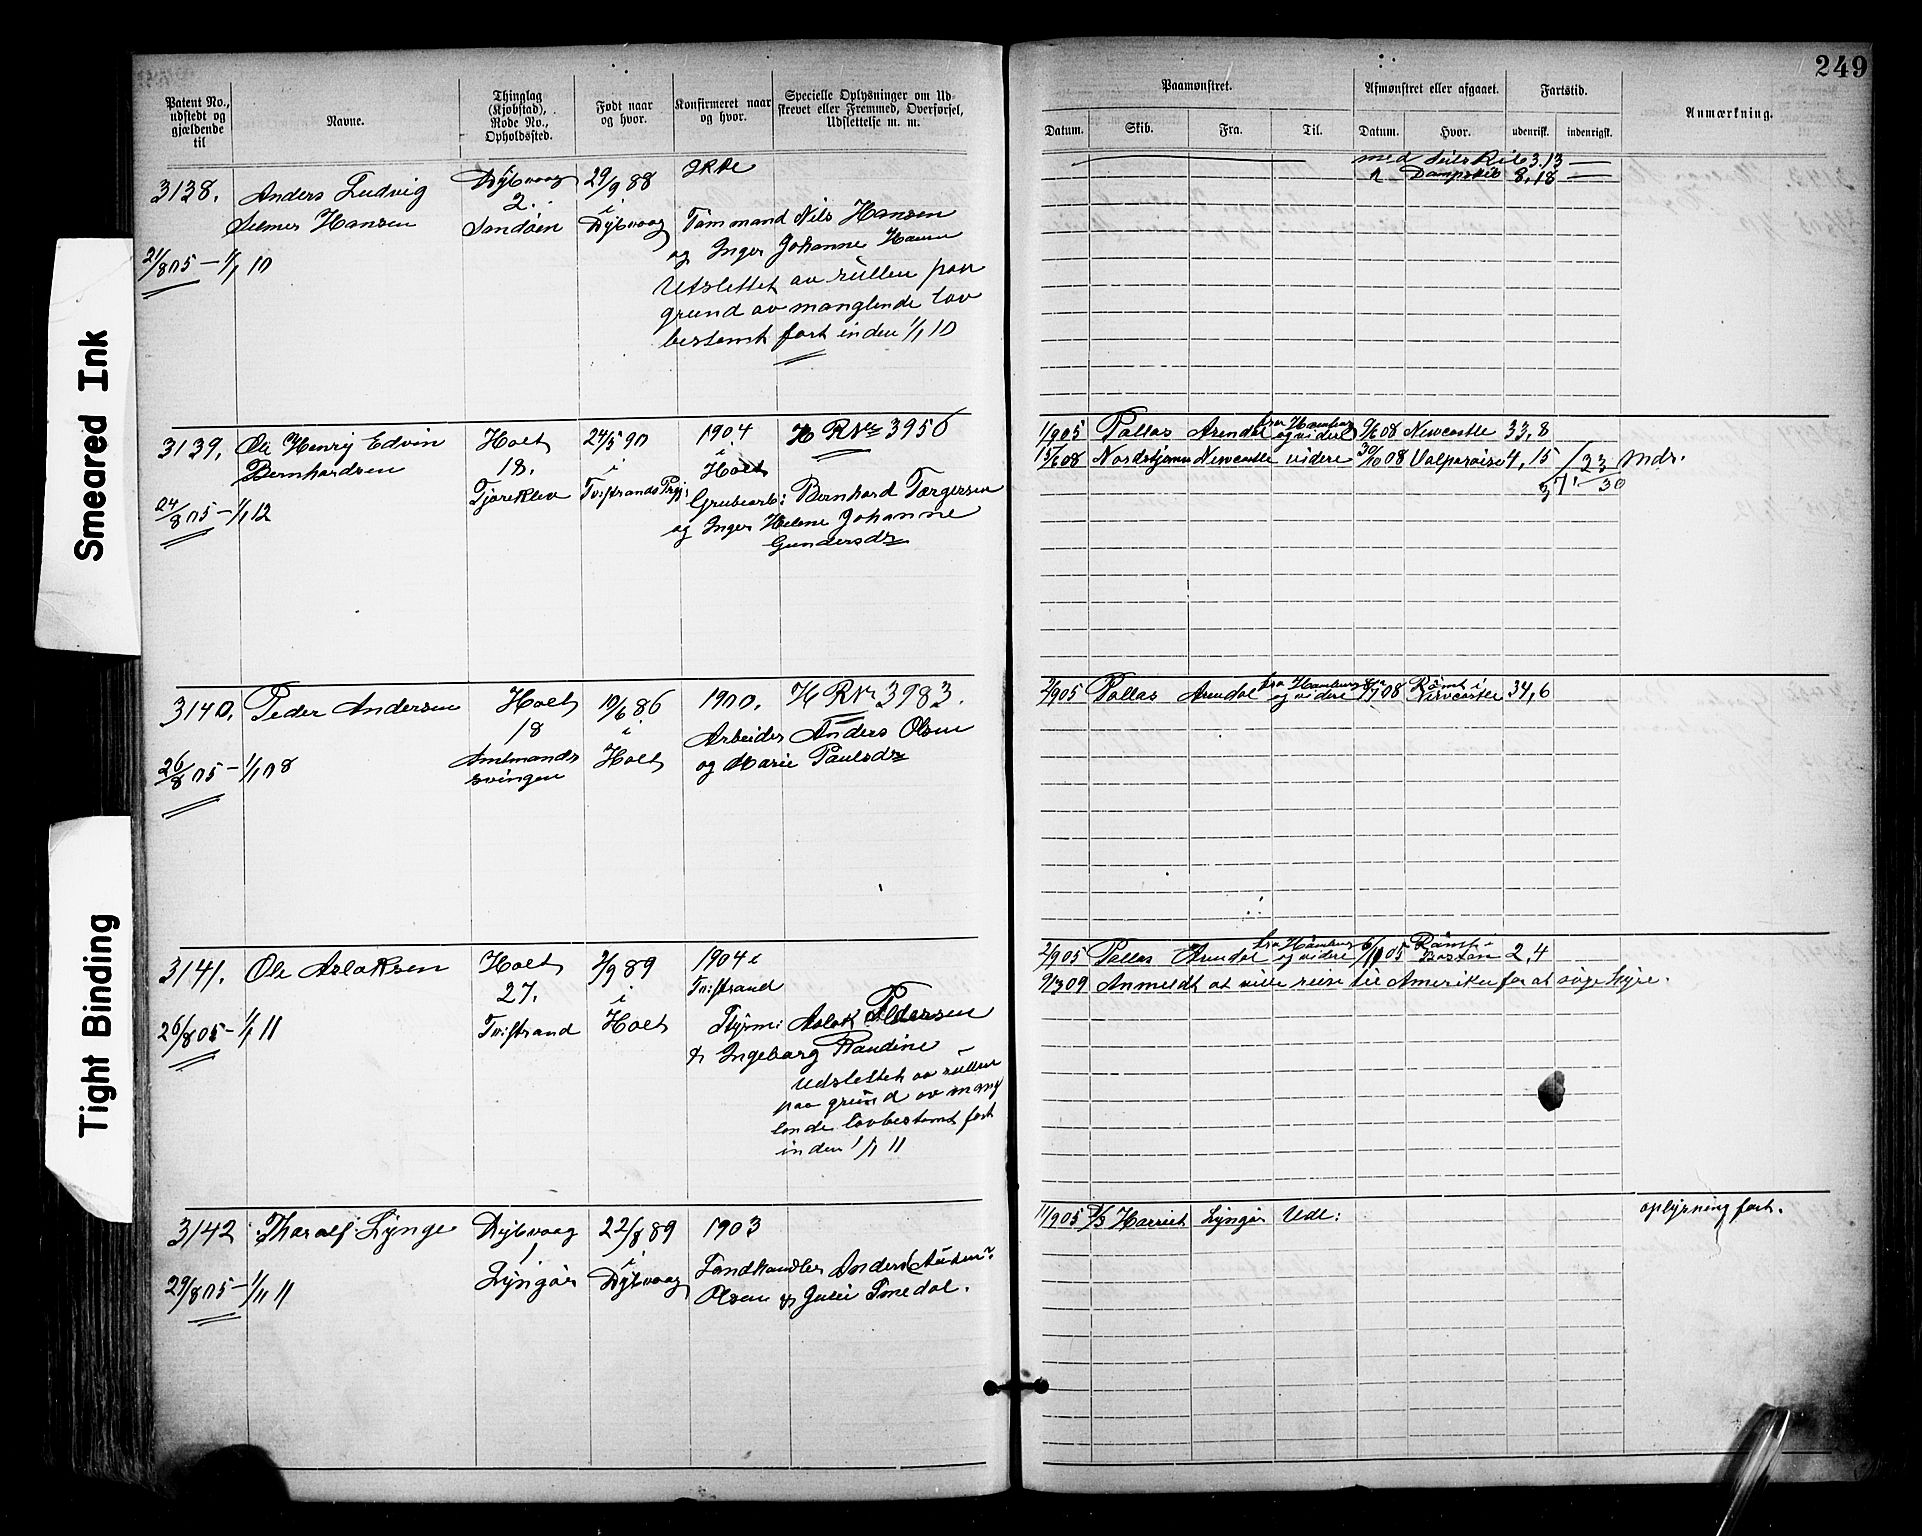 249
Patent No., udstedt og gjældende til
Navne.
Thinglag (Kjøbstad), Rode No., Opholdssted.
Født naar og hvor.
Konfirmeret naar og hvor.
Specielle Oplysninger om Udskrevet eller Fremmed, Overførsel, Udslettelse m. m.
Paamønstret.
Afmønstret eller afgaaet.
Fartstid.
Anmærkning.
Datum. Skib. Fra. Til. Datum. Hvor. udenrigsk. indenrigsk.
Smeared Ink
Tight Binding
3138. Anders Ludvig
Selmer Hansen
21/8 05 – 1/1 10
Dybvaag
2.
Sandøen
29/9 88
i
Dybvaag
ikke
Tømmand Nils Hansen
og Inger Johanne
Udslettet av rullen paa
grund av manglende lov
bestemt fart inden 1/1 10
med Seilskib 3,13 —
" Dampskib 8,18 —
3139. Ole Henry Edvin
Bernhardsen
24/8 05 – 1/1 12
Holt
18.
Tjæreklev
24/5 90
i
1904
i
Holt
H R Nr 3956
Grubearb: Bernhard Tærgersen
og Inger Helene Johanne
Gundersdr
1/9 05 Pallas Arendal fra Hamburg og videre 9/6 08 Newcastle 33,8
15/6 08 Nordstjernen Newcastle videre 30/10 08 Valparaiso 4,15
Mdr.
3140. Peder Andersen
26/8 05 – 1/1 08
Holt
18
Amtmands
svingen
10/6 86
i
Holt
1900. H R Nr 3983.
Arbeider Anders Olsen
og Marie Paulsdr
2/9 05 Pallas Arendal fra Hamburg og videre 08 Rømt i Newcastle 34,6
3141. Ole Aslaksen
26/8 05 – 1/1 11
Holt
27.
Tvistrand
3/9 89
i
Holt
1904 i
Tvistrand
Styrm: Aslak Pedersen
& Ingeborg Randine
Udslettet av rullen
paa grund av mang
lende lovbestemt fart
inden 1/1 11
2/9 05 Pallas Arendal fra Hamburg og videre 6/11 05 Rømt i Boston 2,4
9/3 09 Anmeldt at ville reise til Amerika for at søge hyre.
3142 Tharalf Lynge
29/8 05 – 1/1 11
Dybvaag
1
Lyngør
22/8 89
i
Dybvaag
1903
Landhandler Anders
Olsen & Julie Smedal.
11/9 05 S/S Harriet Lyngør Udl:
oplysning fart.